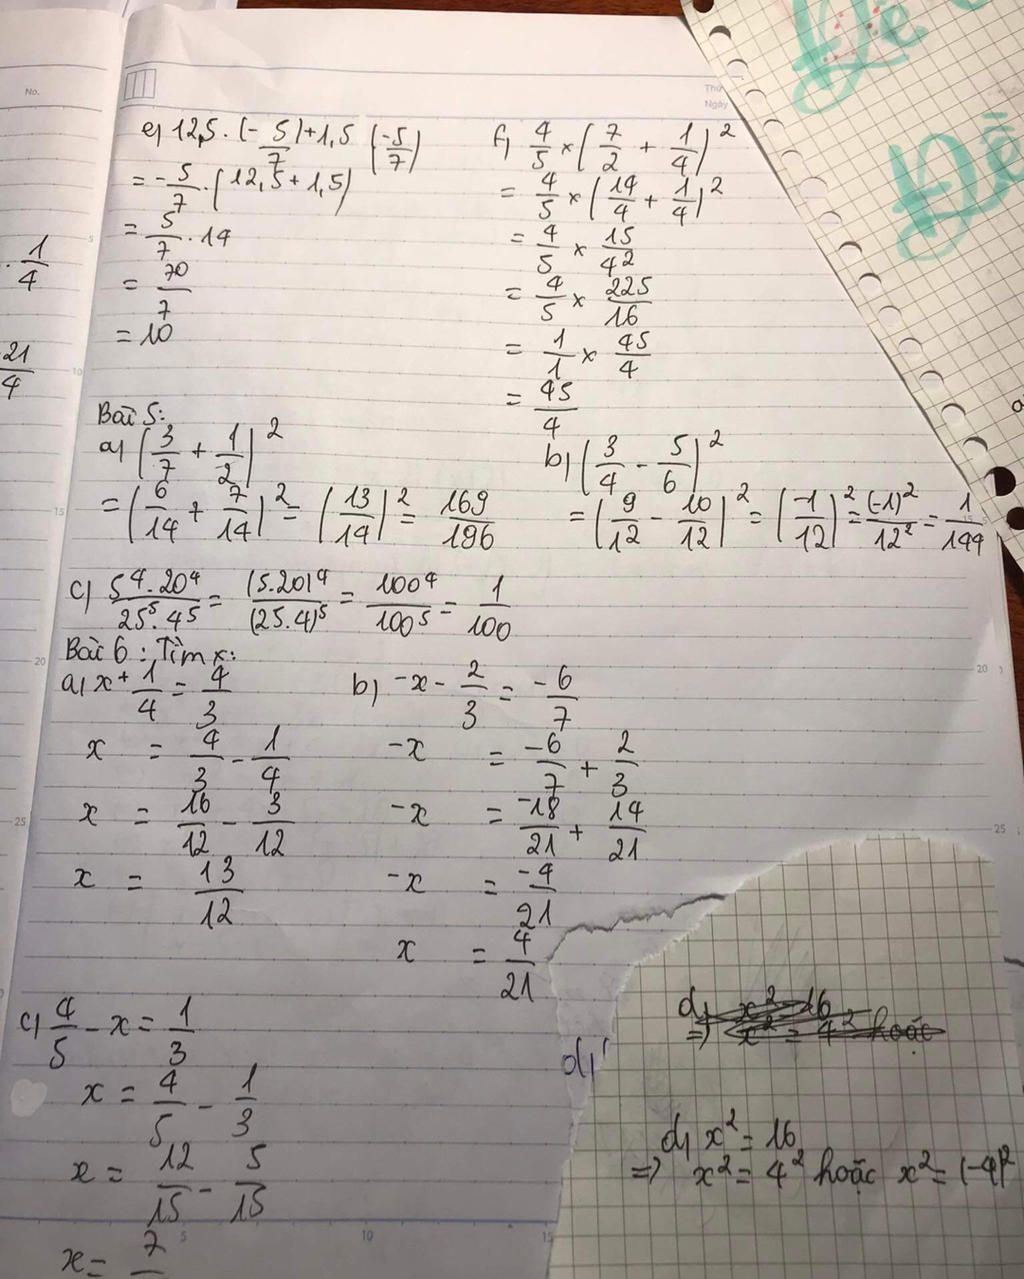 No.
Thứ
Ngày
Đề
Đề
. 1/4
21/4
e) 12,5 . (- 5/7) + 1,5 (-5/7)
= - 5/7 . (12,5 + 1,5)
= 5/7 . 14
= 70/7
= 10
f) 4/5 × (7/2 + 1/4)²
= 4/5 × (14/4 + 1/4)²
= 4/5 × 15/4²
= 4/5 × 225/16
= 1/1 × 45/4
= 45/4
Bài 5:
a) (3/7 + 1/2)²
= (6/14 + 7/14)² = (13/14)² = 169/196
b) (3/4 - 5/6)²
= (9/12 - 10/12)² = (-1/12)² = (-1)²/12² = 1/144
c) 5⁴.20⁴/25⁵.4⁵ = (5.20)⁴/(25.4)⁵ = 100⁴/100⁵ = 1/100
Bài 6: Tìm x:
a) x + 1/4 = 4/3
x = 4/3 - 1/4
x = 16/12 - 3/12
x = 13/12
b) -x - 2/3 = -6/7
-x = -6/7 + 2/3
-x = -18/21 + 14/21
-x = -4/21
x = 4/21
c) 4/5 - x = 1/3
x = 4/5 - 1/3
x = 12/15 - 5/15
x = 7
d)
d) x² = 16
=> x² = 4² hoặc
d) x² = 16
=> x² = 4² hoặc x² = (-4)²
5
10
15
20
25
15
20
25
5
10
15